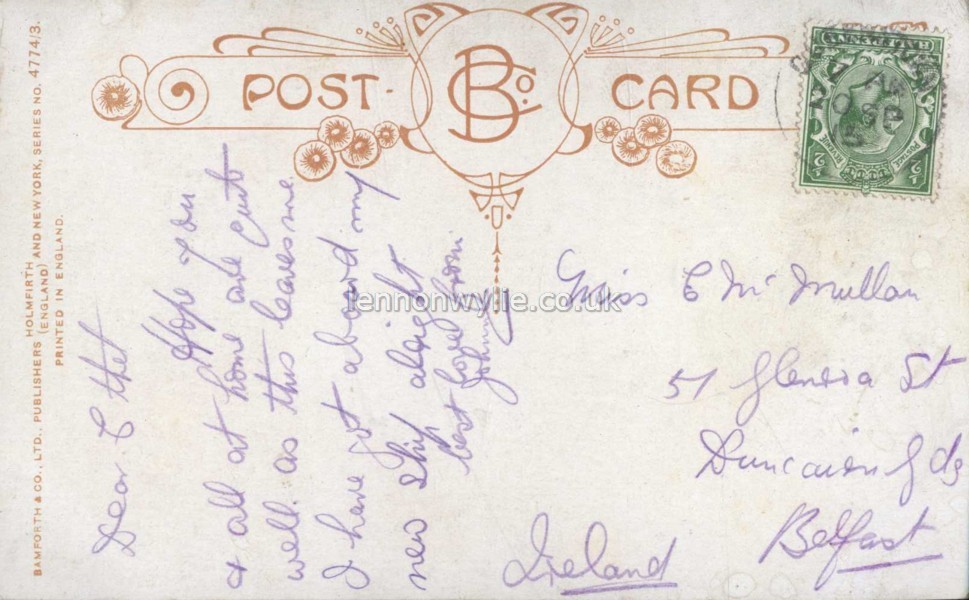 POST CARD
B Co.
BAMFORTH & CO., LTD., PUBLISHERS HOLMFIRTH AND NEW YORK, SERIES NO. 4774/3.
(ENGLAND)
PRINTED IN ENGLAND.
Dear C
Hope you
& all at home are quite
well. as this leaves me
I have got aboard my
new ship alright
best love from
Johnny
Miss C McMullan
51 Glenrosa St
Duncairn Gds
Belfast
Ireland
HALFPENNY
1/2
1/2
tennonwylie.co.uk